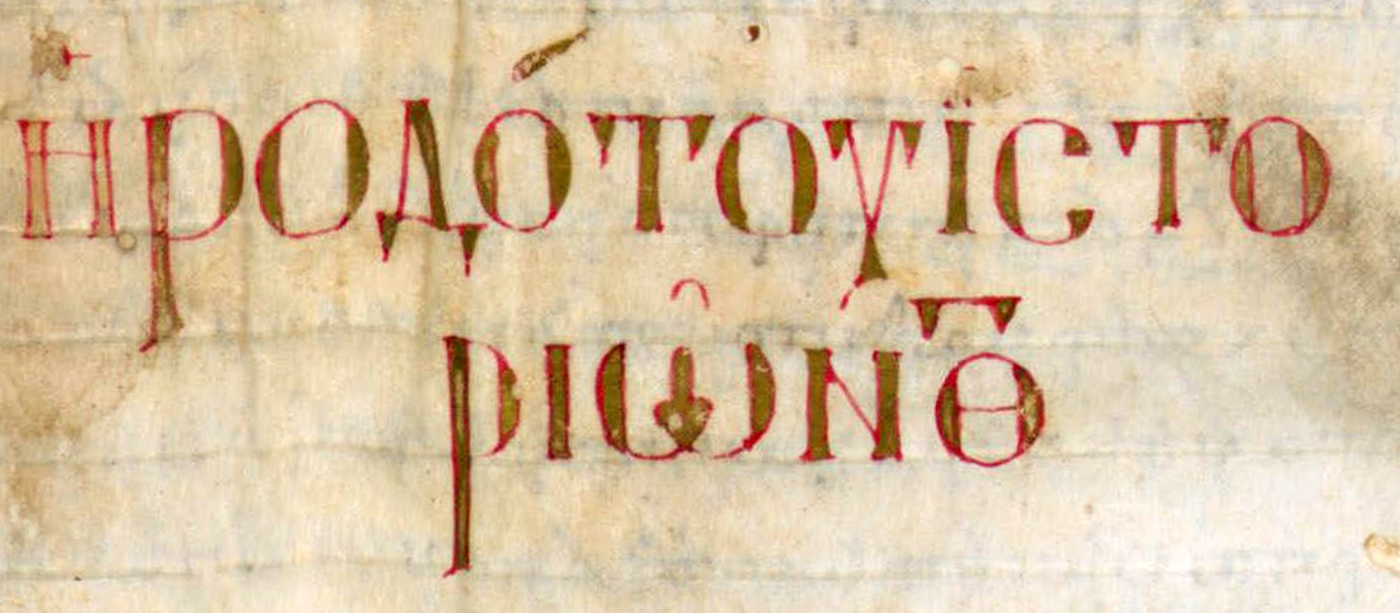 ἩΡΟΔΌΤΟΥ ἹϹΤΟ
ΡΙῶΝ Θ̅